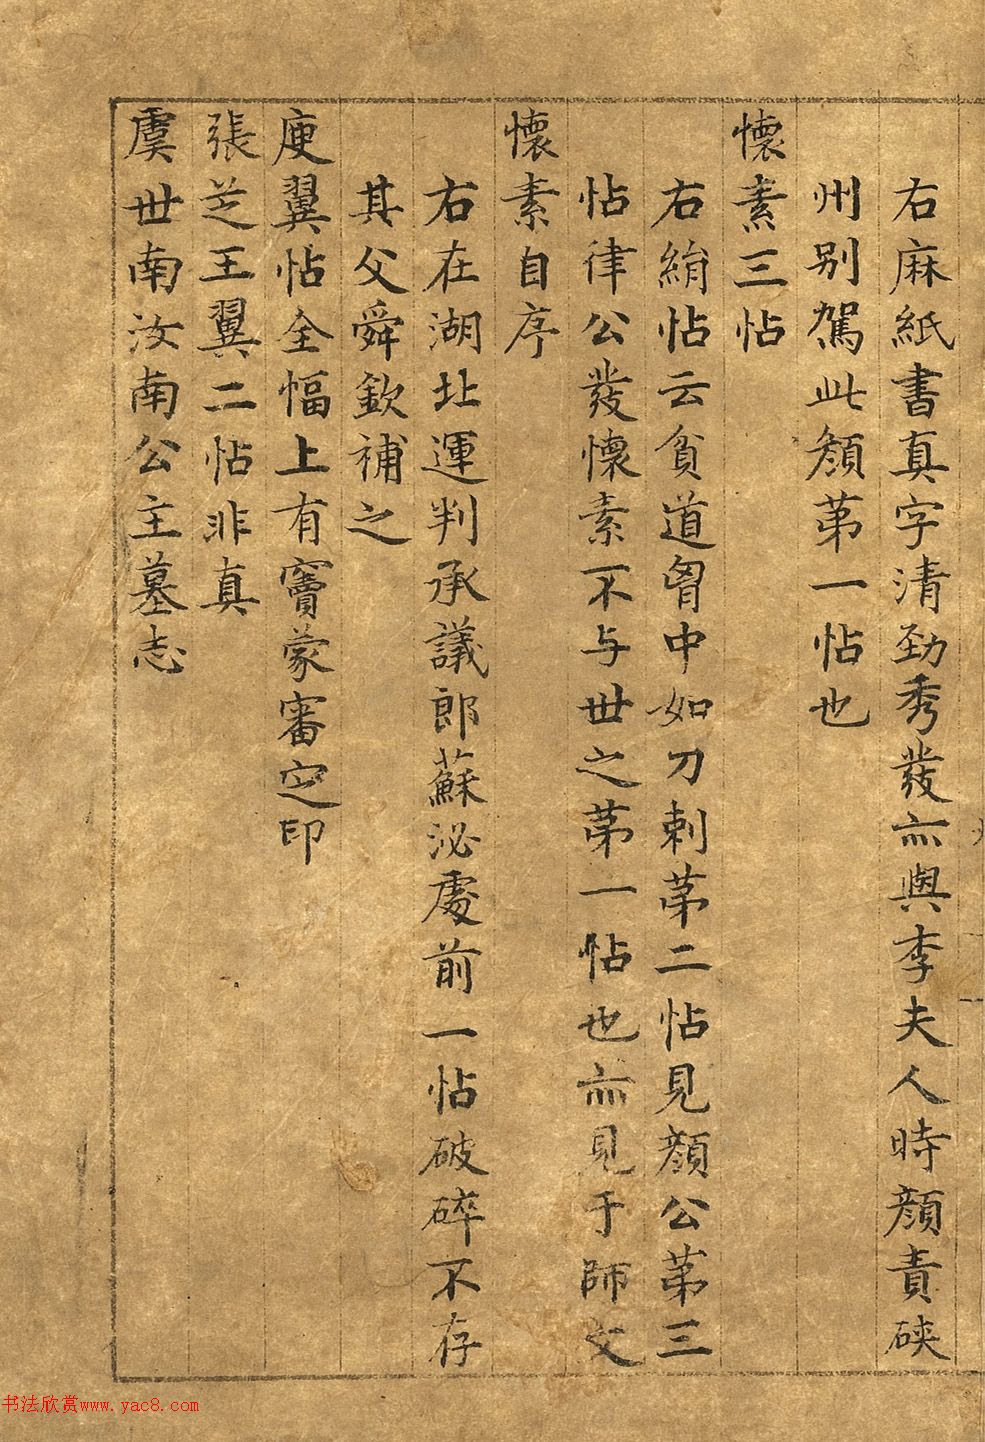 右麻紙書真字清勁秀發亦與李夫人時顏責硤
州别駕此顏第一帖也
懷素三帖
右絹帖云貧道胷中如刀刺第二帖見顏公第三
帖律公發懷素不与世之第一帖也亦見于師文
懷素自序
右在湖北運判承議郎蘇泌處前一帖破碎不存
其父舜欽補之
庾翼帖全幅上有竇蒙審定印
張芝王翼二帖非真
虞世南汝南公主墓志
书法欣赏www.yac8.com